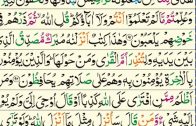 مَّا لَمْ تَعْلَمُوٓا۟ أَنتُمْ وَلَآ ءَابَآؤُكُمْ قُلِ ٱللَّهُ ثُمَّ ذَرْهُمْ فِى
خَوْضِهِمْ يَلْعَبُونَ وَهَٰذَا كِتَٰبٌ أَنزَلْنَٰهُ مُبَارَكٌ مُّصَدِّقُ ٱلَّذِى
بَيْنَ يَدَيْهِ وَلِتُنذِرَ أُمَّ ٱلْقُرَىٰ وَمَنْ حَوْلَهَا وَٱلَّذِينَ يُؤْمِنُونَ
بِٱلْءَاخِرَةِ يُؤْمِنُونَ بِهِۦ وَهُمْ عَلَىٰ صَلَاتِهِمْ يُحَافِظُونَ وَمَنْ
أَظْلَمُ مِمَّنِ ٱفْتَرَىٰ عَلَى ٱللَّهِ كَذِبًا أَوْ قَالَ أُوحِىَ إِلَىَّ وَلَمْ يُوحَ